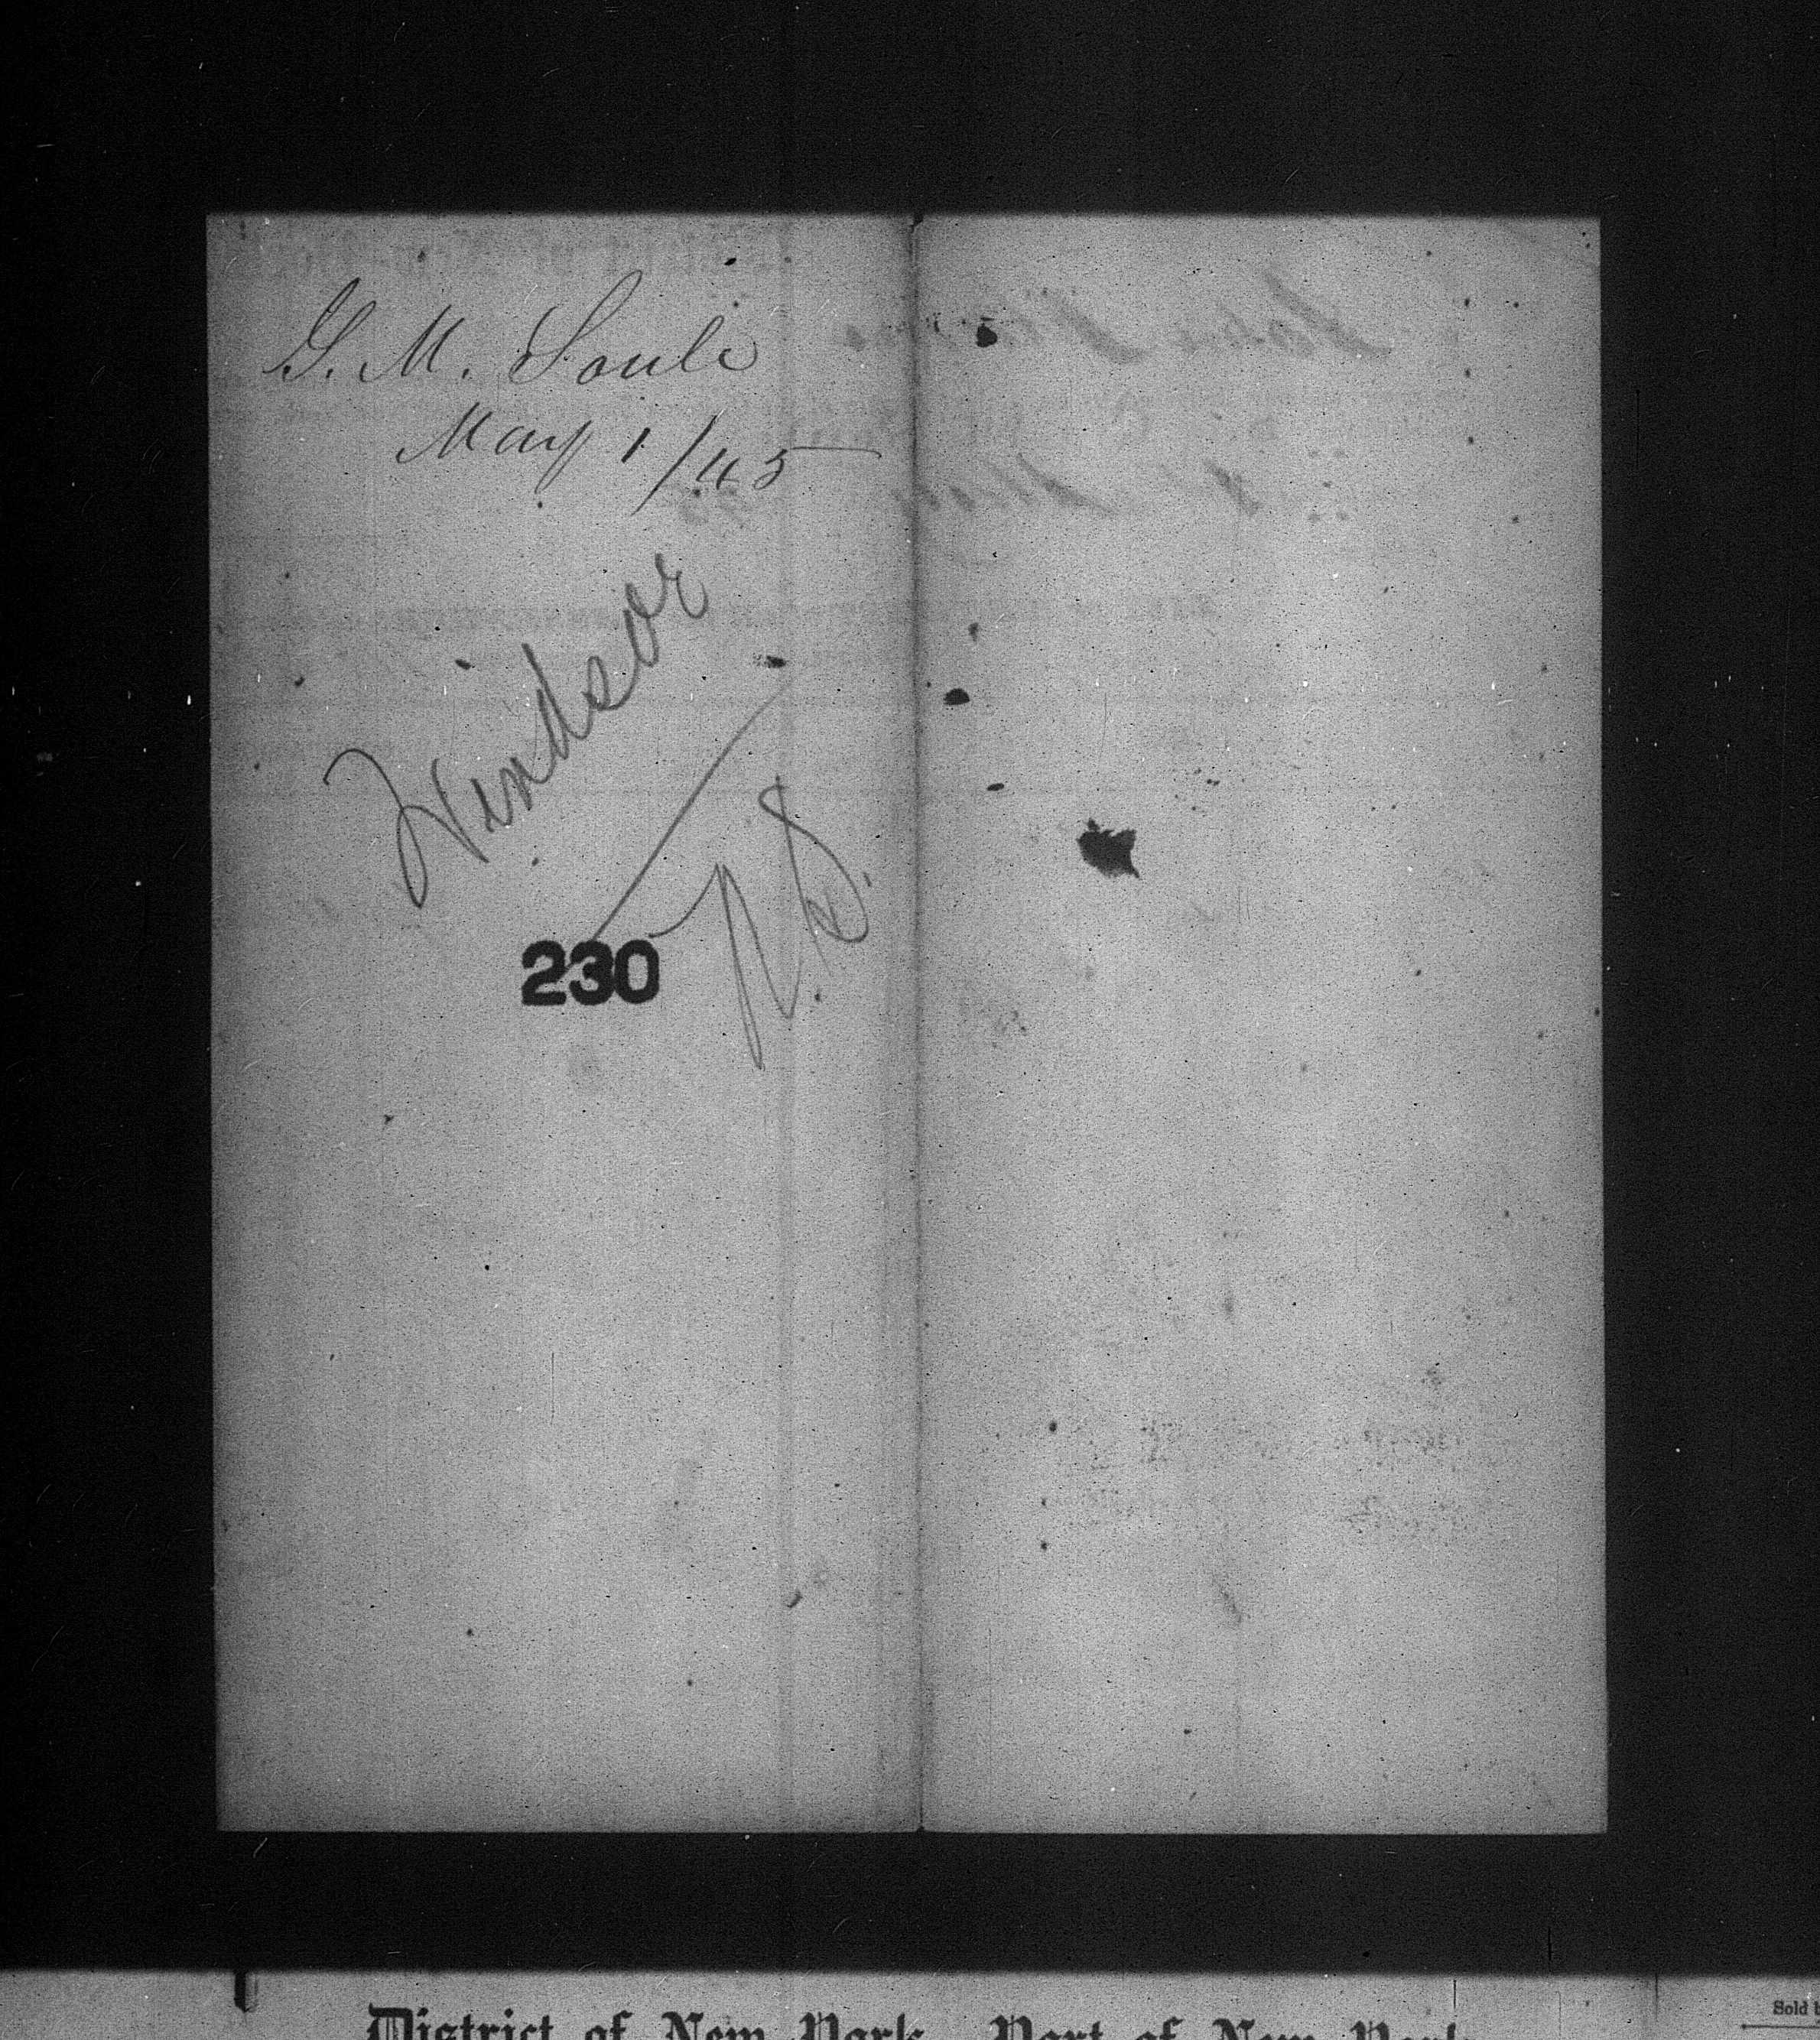 G. M. Soule
May 1/45
Windsor
N.S.
230
District of New York, Port of New York
Sold b